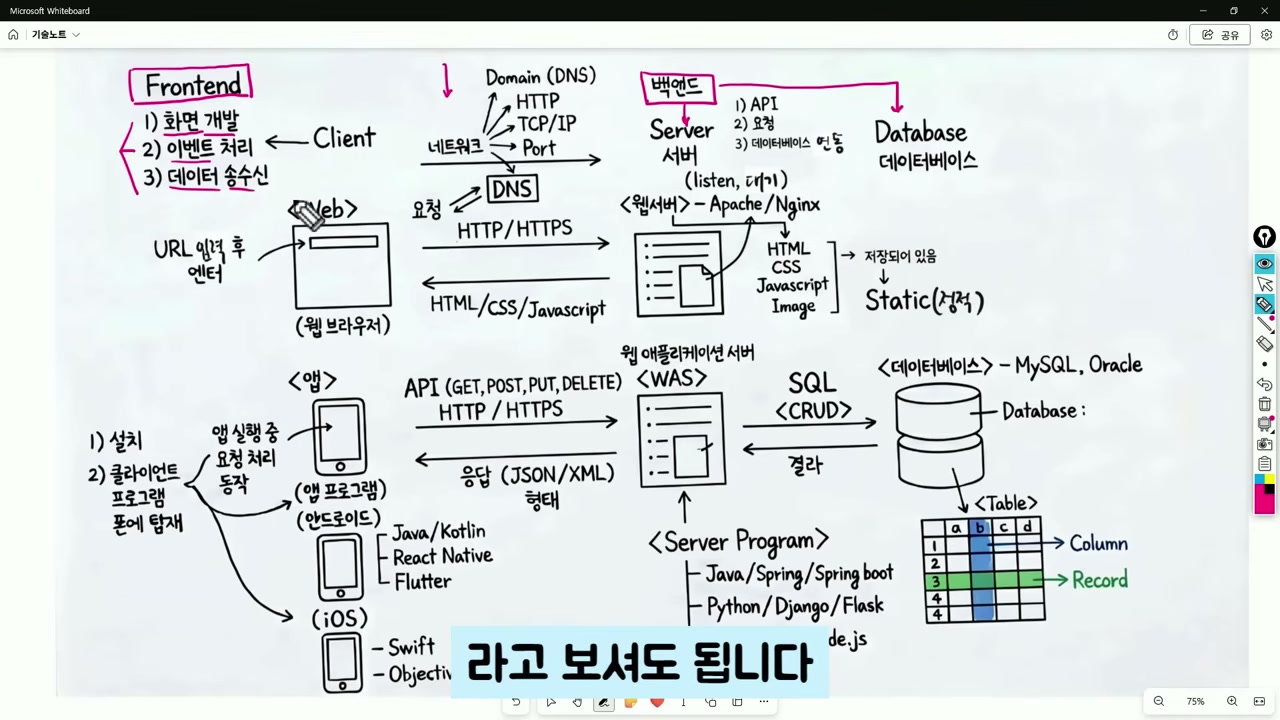 Microsoft Whiteboard
기술노트
공유
Frontend
1) 화면 개발
2) 이벤트 처리
3) 데이터 송수신
Client
Domain (DNS)
HTTP
TCP/IP
Port
네트워크
DNS
요청
백앤드
Server
서버
(listen, 대기)
1) API
2) 요청
3) 데이터베이스 연동
Database
데이터베이스
URL 입력 후
엔터
(웹 브라우저)
HTTP/HTTPS
HTML/CSS/Javascript
<웹서버> - Apache/Nginx
HTML
CSS
Javascript
Image
저장되어 있음
Static(정적)
<앱>
1) 설치
2) 클라이언트
프로그램
폰에 탑재
앱 실행 중
요청 처리
동작
(앱 프로그램)
(안드로이드)
Java/Kotlin
React Native
Flutter
(iOS)
- Swift
API (GET, POST, PUT, DELETE)
HTTP / HTTPS
응답 (JSON/XML)
형태
웹 애플리케이션 서버
<WAS>
SQL
<CRUD>
결과
<데이터베이스> - MySQL, Oracle
Database :
<Table>
a b c d
1
2
3
4
4
Column
Record
<Server Program>
Java/Spring/Spring boot
Python/Django/Flask
de.js
라고 보셔도 됩니다
75%